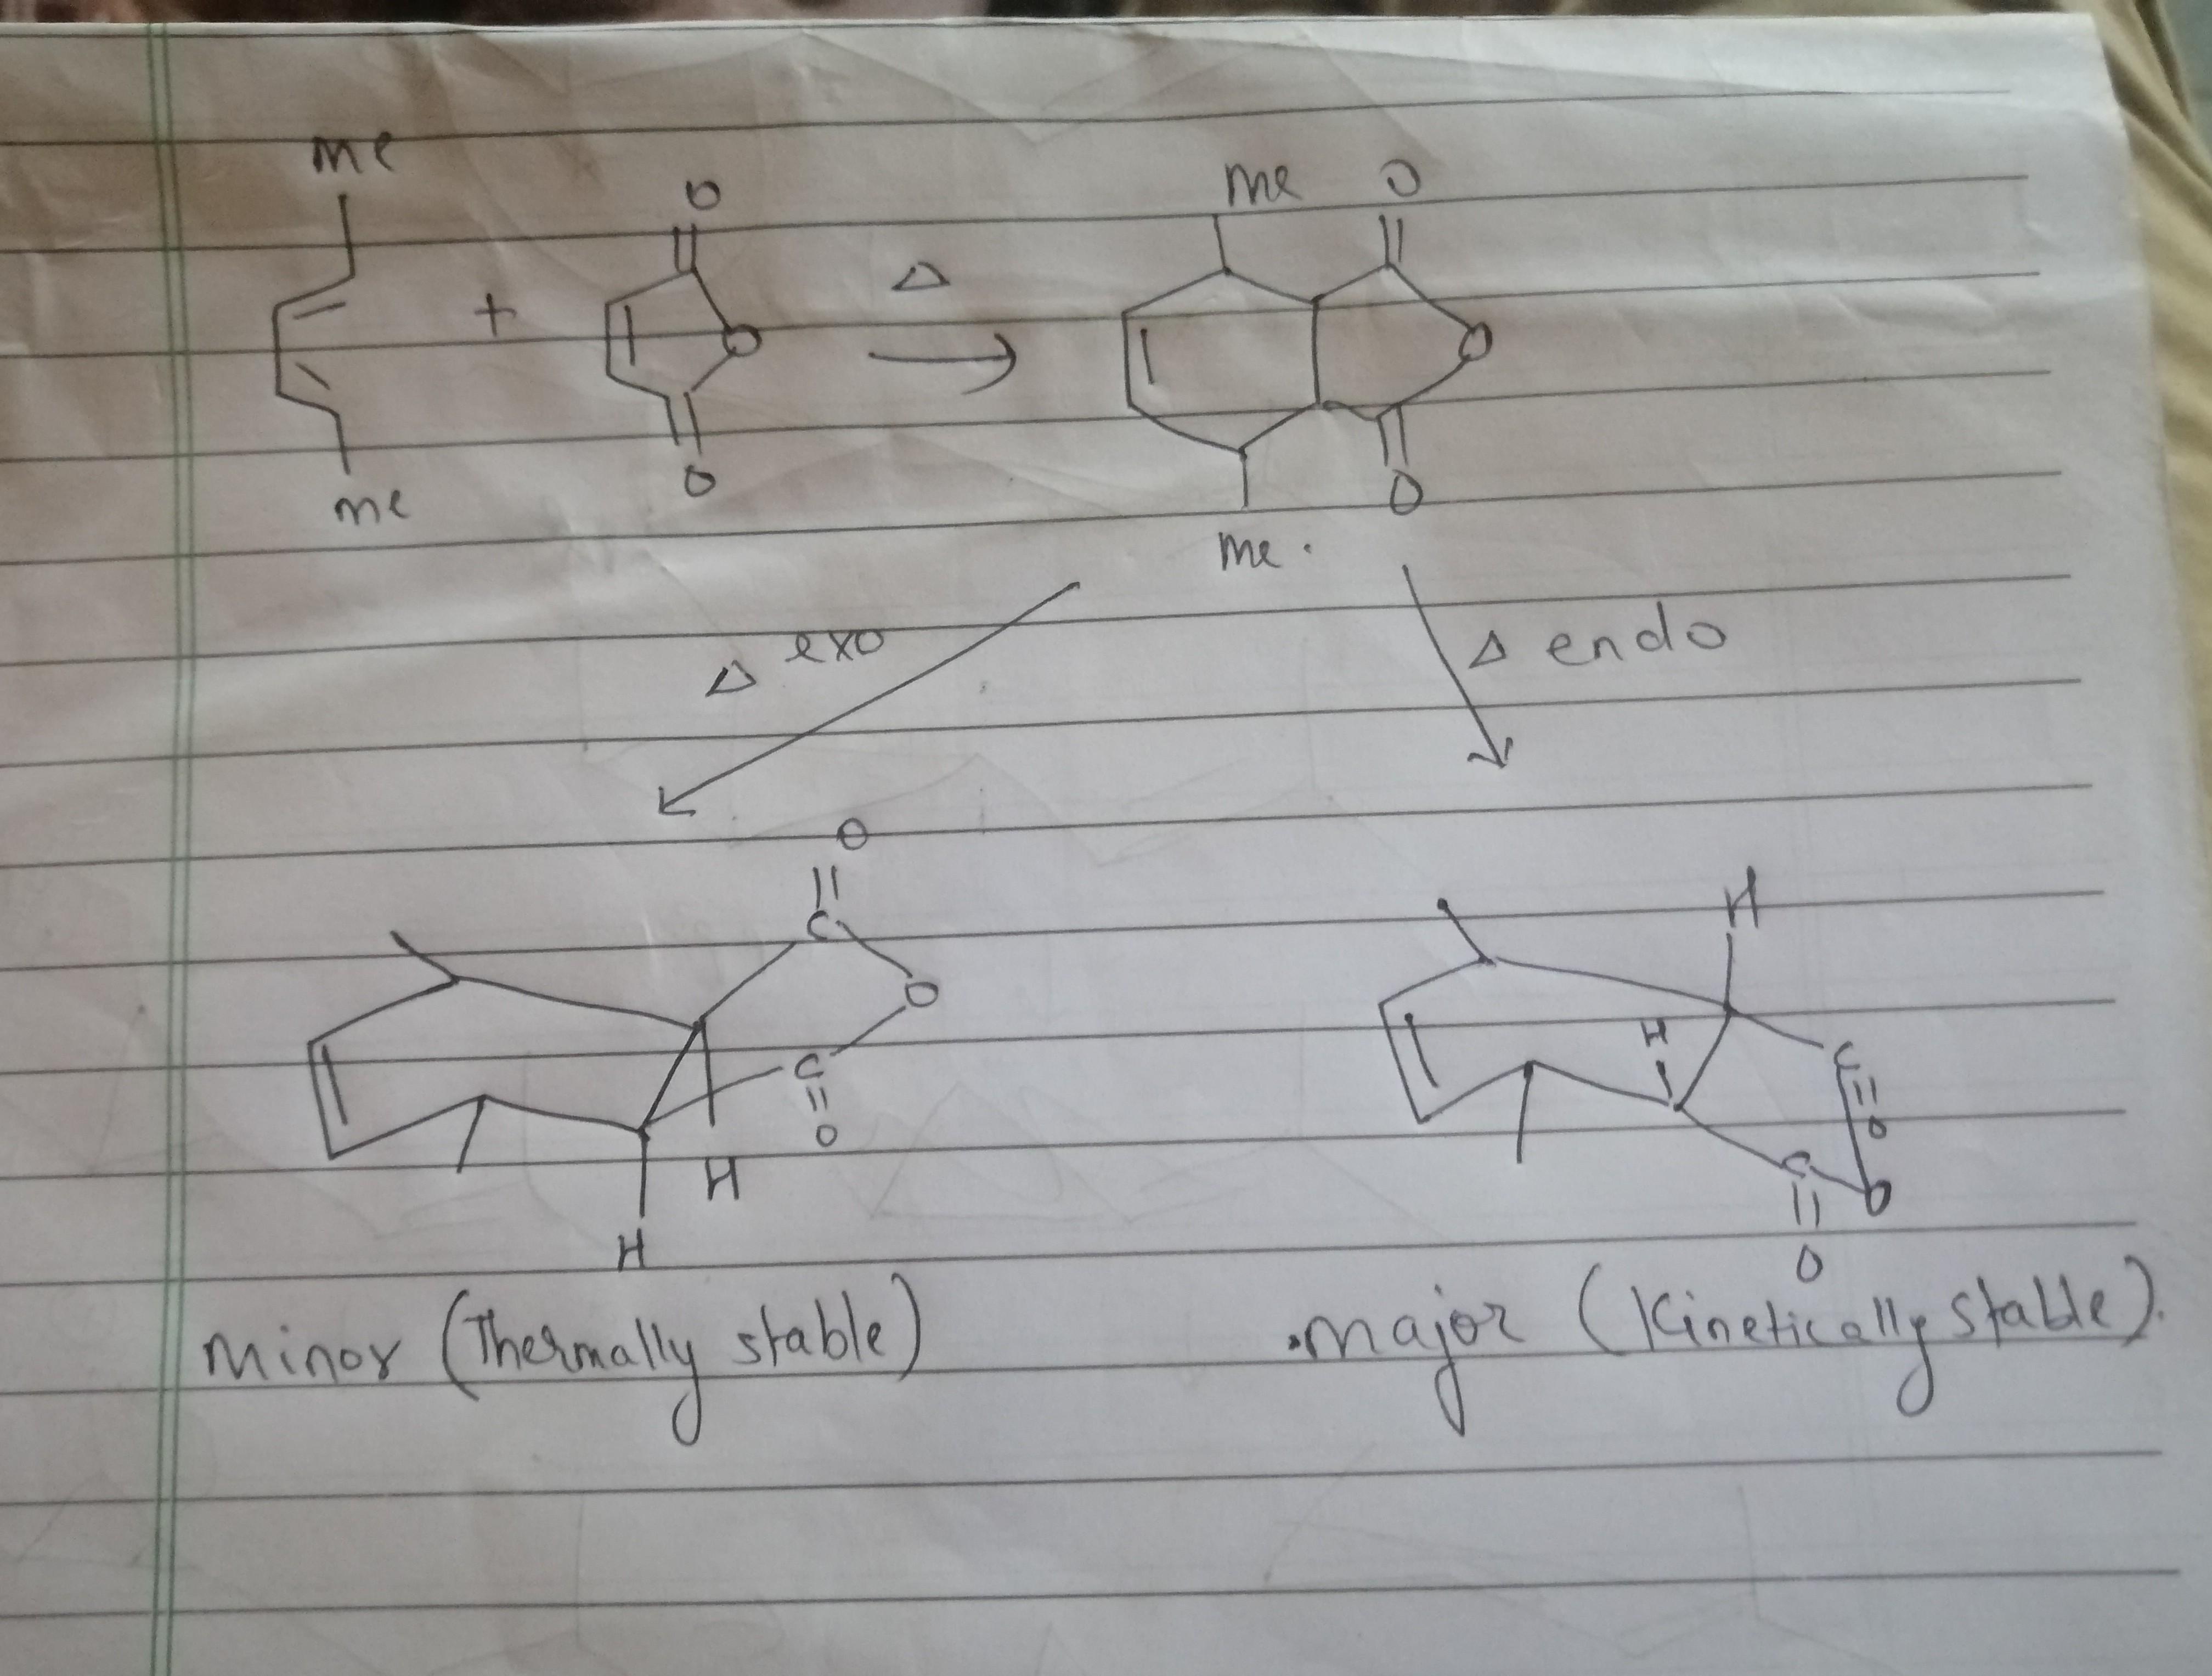 me
O
+
O
Δ
O
me
me O
O
O
me.
Δ exo
Δ endo
O
C
O
C
O
H
H
H
H
C
O
C
O
O
minor (Thermally stable)
.major (Kinetically stable).